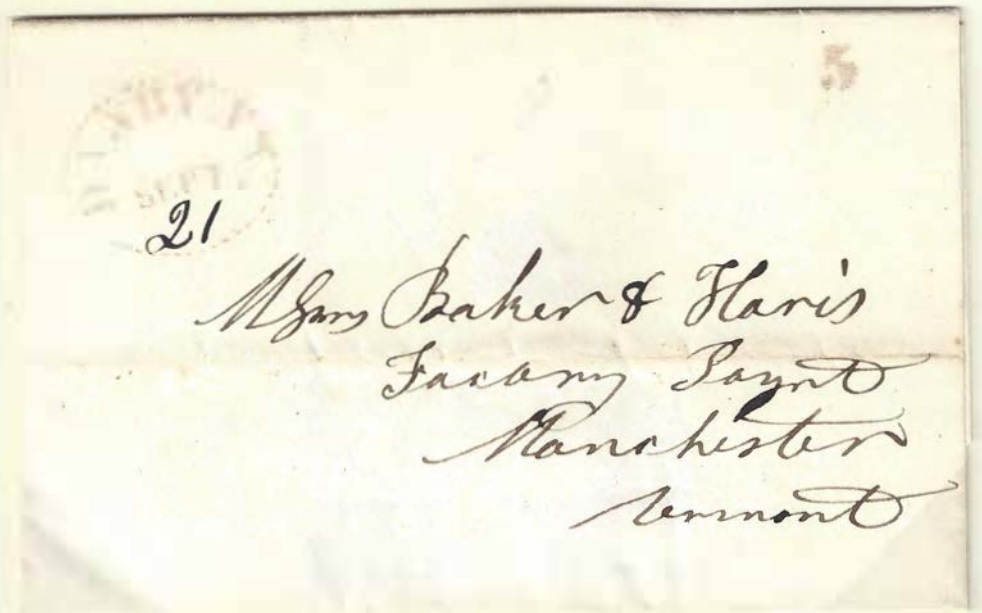 5
SEPT
21
Messrs Baker & Haris
Facory Poynt
Manchester
Vermont